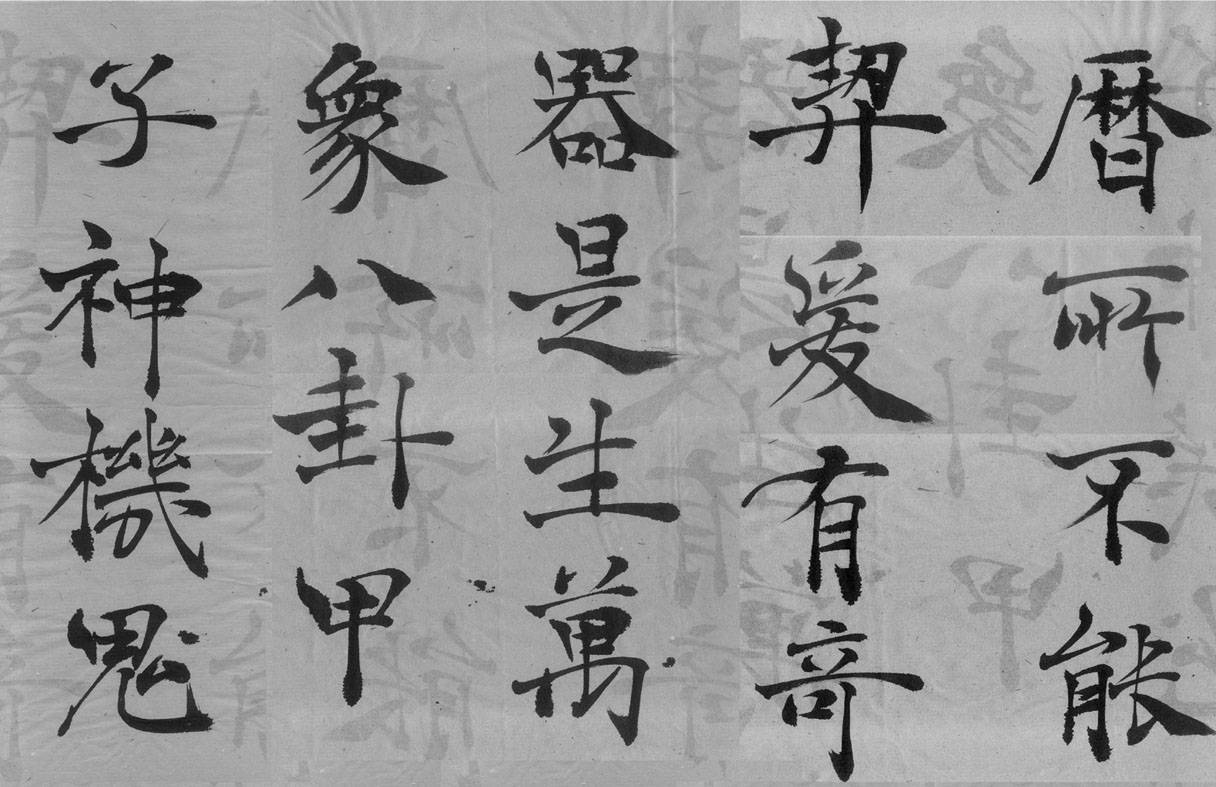 曆所不能
契爰有竒
器是生萬
象八卦甲
子神機鬼